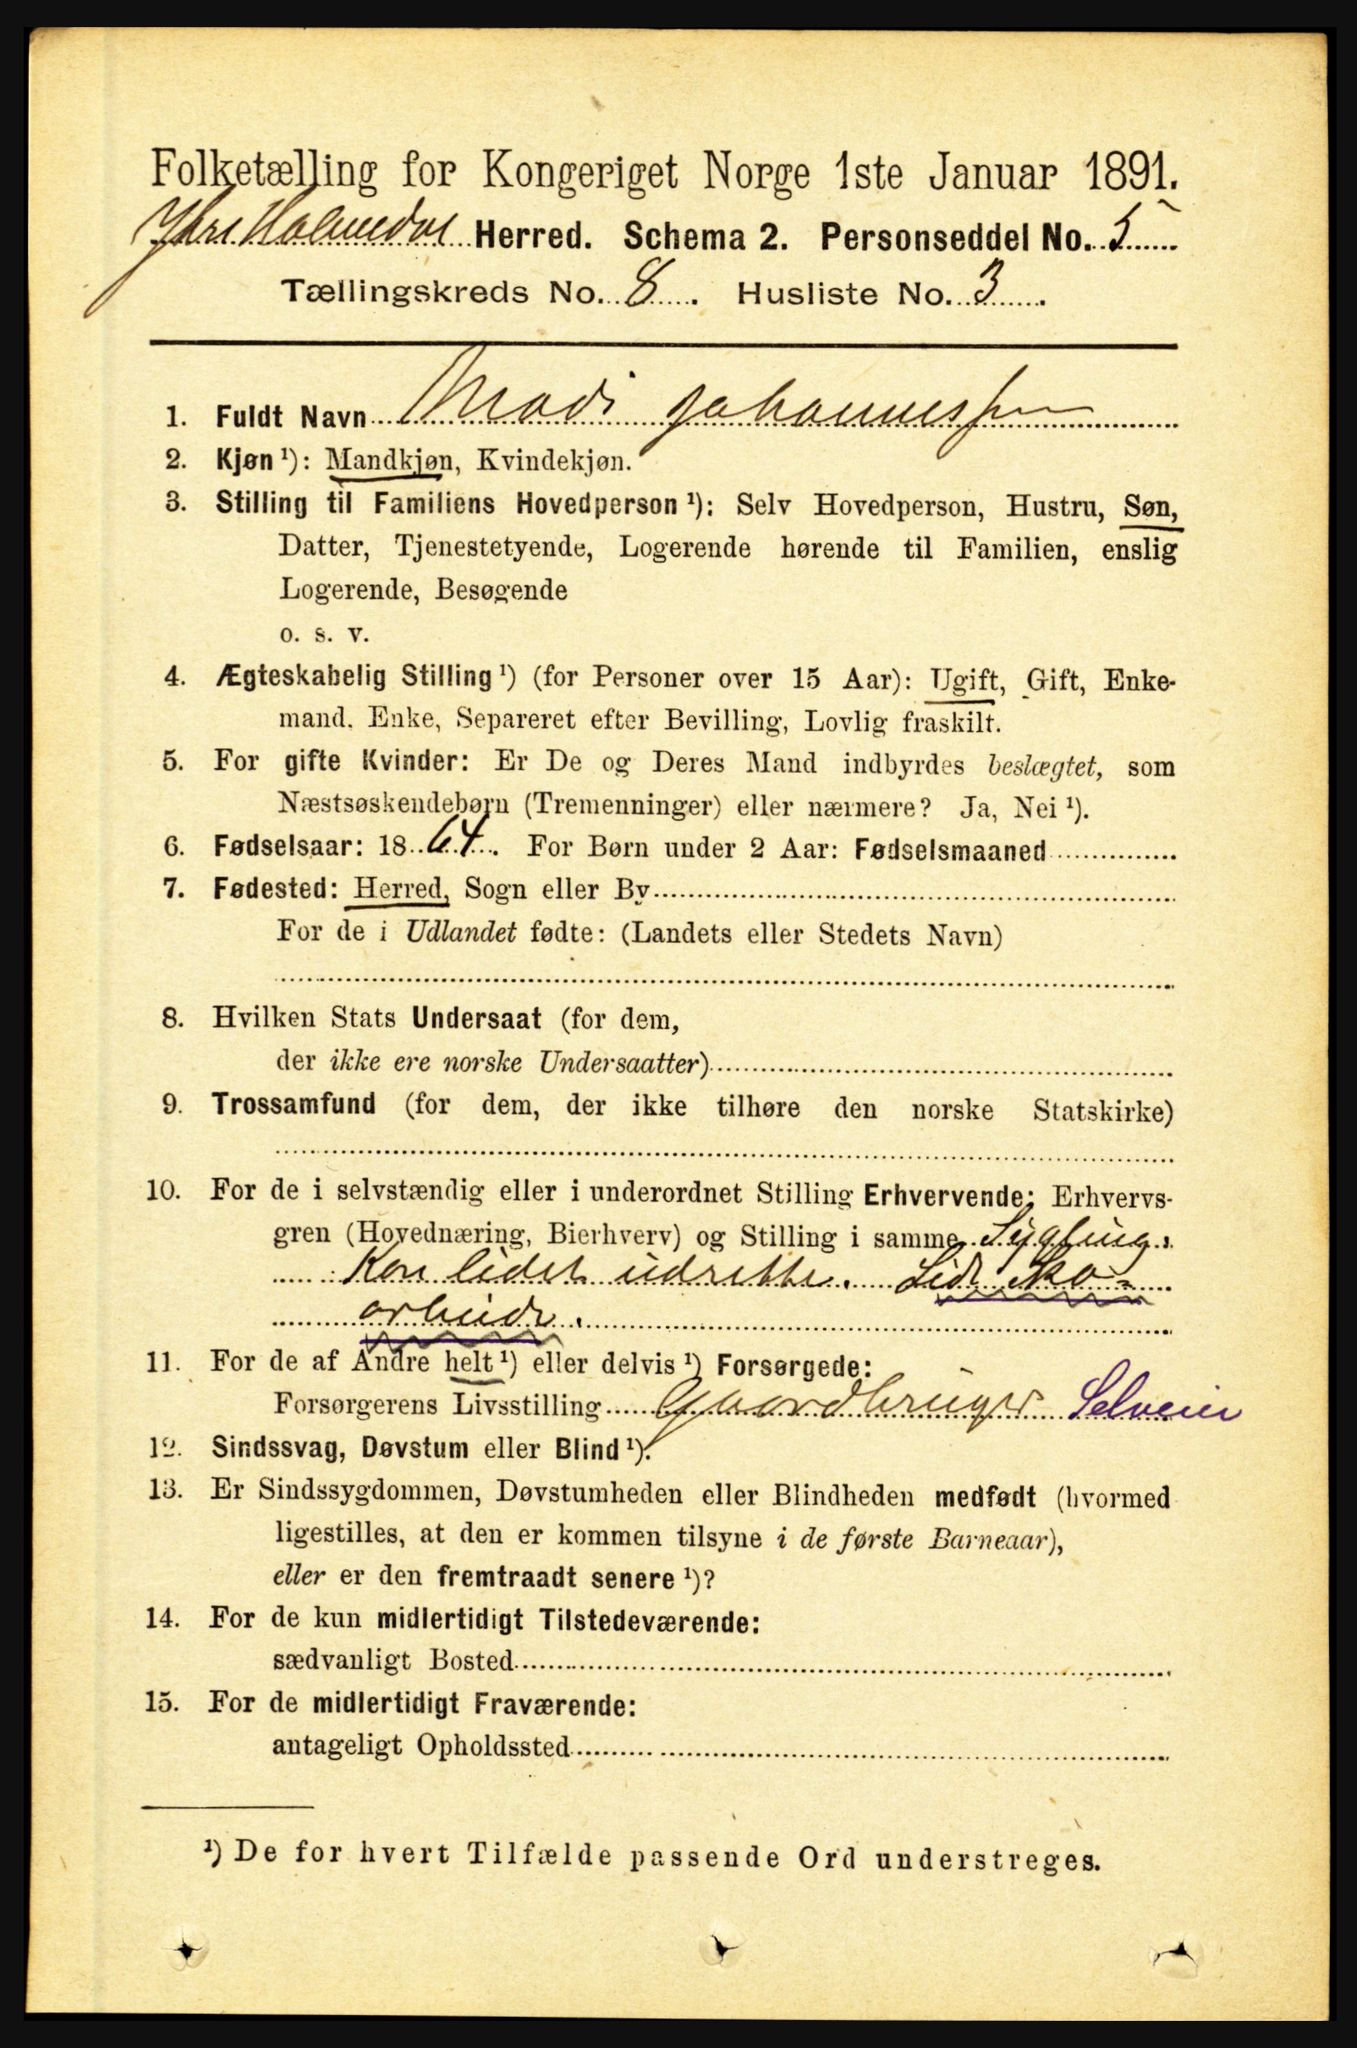 Folketælling for Kongeriget Norge 1ste Januar 1891.
Ytre Holmedal Herred. Schema 2. Personseddel No. 5
Tællingskreds No. 8. Husliste No. 3.
1. Fuldt Navn Mads Johannessen
2. Kjøn ¹): Mandkjøn, Kvindekjøn.
3. Stilling til Familiens Hovedperson ¹): Selv Hovedperson, Hustru, Søn,
Datter, Tjenestetyende, Logerende hørende til Familien, enslig
Logerende, Besøgende
o. s. v.
4. Ægteskabelig Stilling ¹) (for Personer over 15 Aar): Ugift, Gift, Enke-
mand, Enke, Separeret efter Bevilling, Lovlig fraskilt.
5. For gifte Kvinder: Er De og Deres Mand indbyrdes beslægtet, som
Næstsøskendebørn (Tremenninger) eller nærmere? Ja, Nei ¹).
6. Fødselsaar: 1864. For Børn under 2 Aar: Fødselsmaaned
7. Fødested: Herred, Sogn eller By
For de i Udlandet fødte: (Landets eller Stedets Navn)
8. Hvilken Stats Undersaat (for dem,
der ikke ere norske Undersaatter)
9. Trossamfund (for dem, der ikke tilhøre den norske Statskirke)
10. For de i selvstændig eller i underordnet Stilling Erhvervende: Erhvervs-
gren (Hovednæring, Bierhverv) og Stilling i samme Sygling.
Kan lidet udrette. Lidt Sko-
arbeide.
11. For de af Andre helt ¹) eller delvis ¹) Forsørgede:
Forsørgerens Livsstilling Gaardbruger Selveier
12. Sindssvag, Døvstum eller Blind ¹).
13. Er Sindssygdommen, Døvstumheden eller Blindheden medfødt (hvormed
ligestilles, at den er kommen tilsyne i de første Barneaar),
eller er den fremtraadt senere ¹)?
14. For de kun midlertidigt Tilstedeværende:
sædvanligt Bosted
15. For de midlertidigt Fraværende:
antageligt Opholdssted
¹) De for hvert Tilfælde passende Ord understreges.